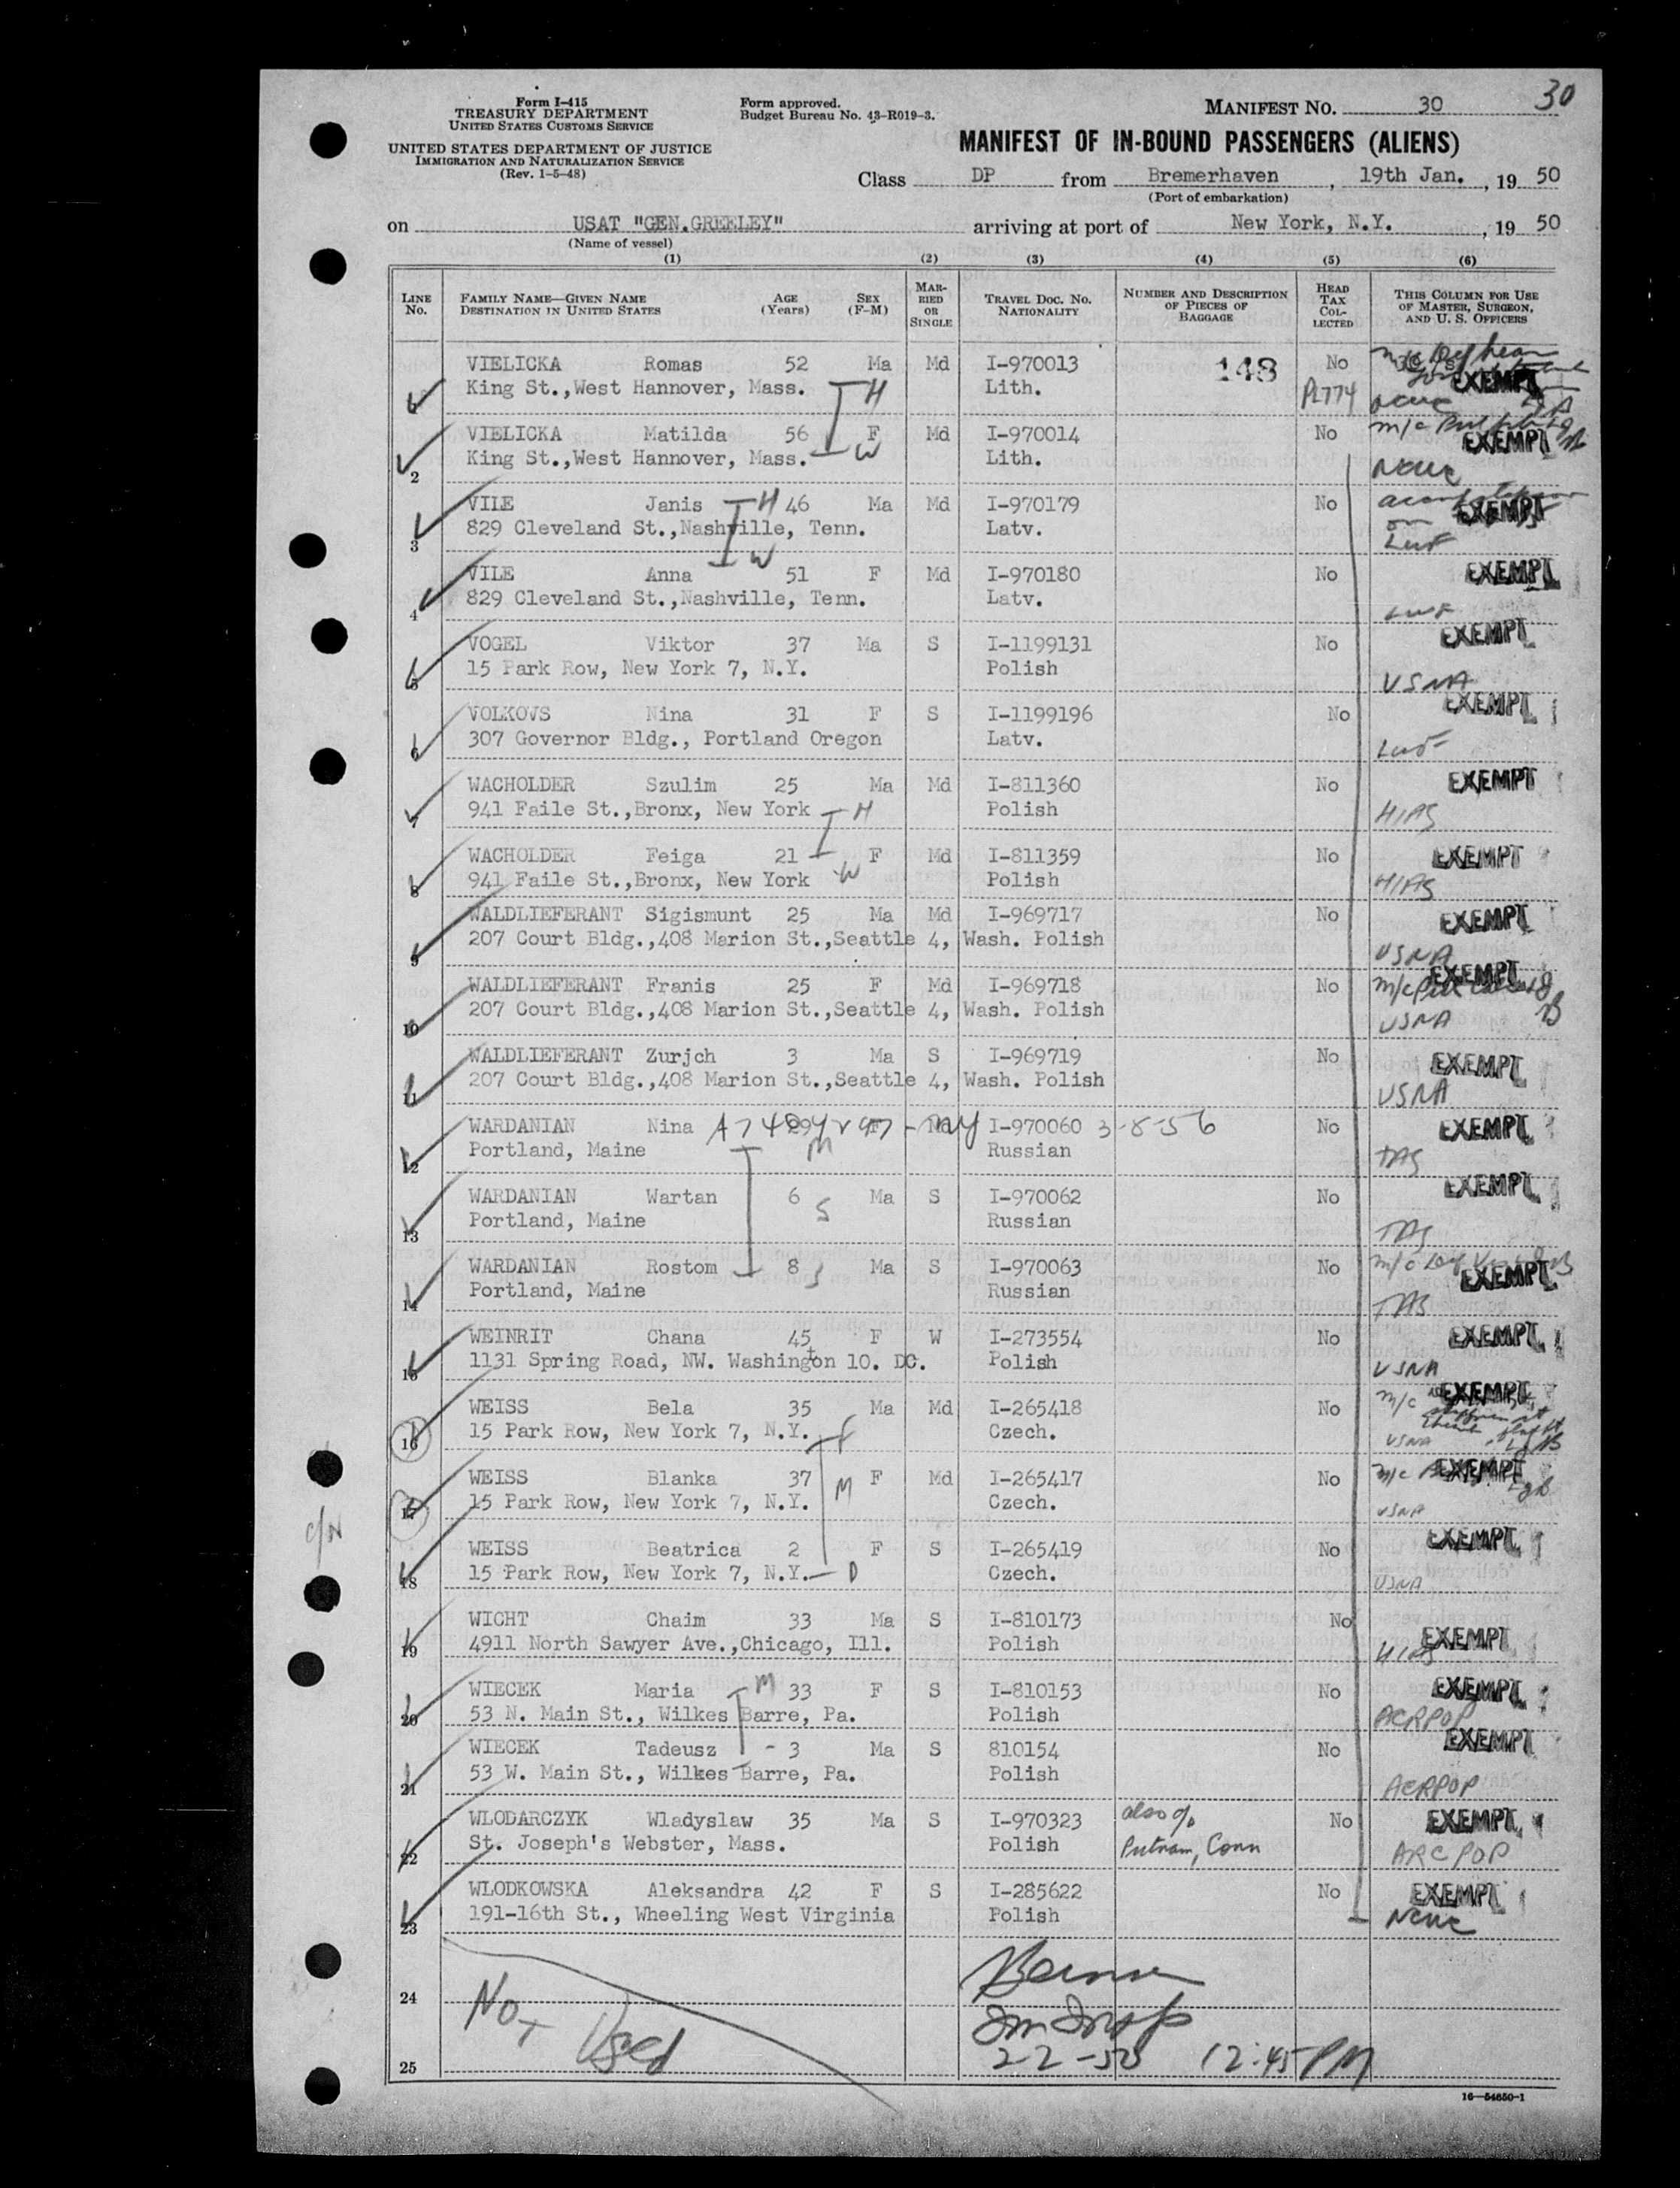 30
Form I-415
TREASURY DEPARTMENT
UNITED STATES CUSTOMS SERVICE
UNITED STATES DEPARTMENT OF JUSTICE
IMMIGRATION AND NATURALIZATION SERVICE
(Rev. 1-5-48)
Form approved.
Budget Bureau No. 43-R019-3.
MANIFEST NO. 30
MANIFEST OF IN-BOUND PASSENGERS (ALIENS)
Class DP from Bremerhaven, 19th Jan., 19 50
(Port of embarkation)
on USAT "GEN.GREELEY" arriving at port of New York, N.Y., 19 50
(Name of vessel)
(1) (2) (3) (4) (5) (6)
LINE No. FAMILY NAME—GIVEN NAME DESTINATION IN UNITED STATES AGE (Years) SEX (F-M) MARRIED OR SINGLE TRAVEL DOC. NO. NATIONALITY NUMBER AND DESCRIPTION OF PIECES OF BAGGAGE HEAD TAX COLLECTED THIS COLUMN FOR USE OF MASTER, SURGEON, AND U. S. OFFICERS
VIELICKA Romas 52 Ma Md I-970013 148 No EXEMPT
King St.,West Hannover, Mass. H Lith. PL774 None
VIELICKA Matilda 56 F Md I-970014 No m/c EXEMPT
2 King St.,West Hannover, Mass. W Lith. None
VILE Janis H 46 Ma Md I-970179 No EXEMPT
3 829 Cleveland St.,Nashville, Tenn. W Latv. LWF
VILE Anna 51 F Md I-970180 No EXEMPT
4 829 Cleveland St.,Nashville, Tenn. Latv. LWF
VOGEL Viktor 37 Ma S I-1199131 No EXEMPT
5 15 Park Row, New York 7, N.Y. Polish USNA
VOLKOVS Nina 31 F S I-1199196 No EXEMPT
6 307 Governor Bldg., Portland Oregon Latv. LWF
WACHOLDER Szulim 25 Ma Md I-811360 No EXEMPT
7 941 Faile St.,Bronx, New York H Polish HIAS
WACHOLDER Feiga 21 F Md I-811359 No EXEMPT
8 941 Faile St.,Bronx, New York W Polish HIAS
WALDLIEFERANT Sigismunt 25 Ma Md I-969717 No EXEMPT
9 207 Court Bldg.,408 Marion St.,Seattle 4, Wash. Polish USNA
WALDLIEFERANT Franis 25 F Md I-969718 No m/c EXEMPT
10 207 Court Bldg.,408 Marion St.,Seattle 4, Wash. Polish USNA
WALDLIEFERANT Zurjch 3 Ma S I-969719 No EXEMPT
11 207 Court Bldg.,408 Marion St.,Seattle 4, Wash. Polish USNA
WARDANIAN Nina I-970060 3-8-56 No EXEMPT
12 Portland, Maine M Russian TAS
WARDANIAN Wartan 6 Ma S I-970062 No EXEMPT
13 Portland, Maine S Russian TAS
WARDANIAN Rostom 8 Ma S I-970063 No m/c EXEMPT
14 Portland, Maine S Russian TAS
WEINRIT Chana 45 F W I-273554 No EXEMPT
15 1131 Spring Road, NW. Washington 10. DC. Polish USNA
WEISS Bela 35 Ma Md I-265418 No m/c EXEMPT
16 15 Park Row, New York 7, N.Y. F Czech. USNA
WEISS Blanka 37 F Md I-265417 No m/c EXEMPT
17 15 Park Row, New York 7, N.Y. M Czech. USNA
WEISS Beatrica 2 F S I-265419 No EXEMPT
18 15 Park Row, New York 7, N.Y. D Czech. USNA
WICHT Chaim 33 Ma S I-810173 No EXEMPT
19 4911 North Sawyer Ave.,Chicago, Ill. Polish HIAS
WIECEK Maria M 33 F S I-810153 No EXEMPT
20 53 N. Main St., Wilkes Barre, Pa. Polish ACRPOP
WIECEK Tadeusz - 3 Ma S 810154 No EXEMPT
21 53 W. Main St., Wilkes Barre, Pa. Polish ACRPOP
WLODARCZYK Wladyslaw 35 Ma S I-970323 also % No EXEMPT
22 St. Joseph's Webster, Mass. Polish Putnam, Conn ARCPOP
WLODKOWSKA Aleksandra 42 F S I-285622 No EXEMPT
23 191-16th St., Wheeling West Virginia Polish None
24 Not Used
25 2-2-50 12:45 PM
16—54650-1